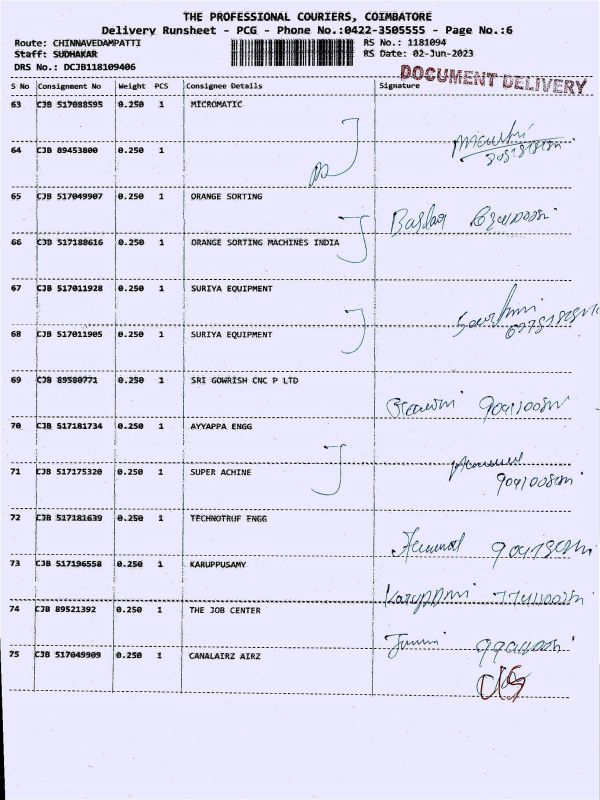 THE PROFESSIONAL COURIERS, COIMBATORE
Delivery Runsheet - PCG - Phone No.:0422-3505555 - Page No.:6
Route: CHINNAVEDAMPATTI RS No.: 1181094
Staff: SUDHAKAR RS Date: 02-Jun-2023
DRS No.: DCJB118109406
DOCUMENT DELIVERY
S No Consignment No Weight PCS Consignee Details Signature
63 CJB 517088595 0.250 1 MICROMATIC
64 CJB 89453800 0.250 1
65 CJB 517049907 0.250 1 ORANGE SORTING
66 CJB 517188616 0.250 1 ORANGE SORTING MACHINES INDIA
67 CJB 517011928 0.250 1 SURIYA EQUIPMENT
68 CJB 517011905 0.250 1 SURIYA EQUIPMENT
69 CJB 89580771 0.250 1 SRI GOWRISH CNC P LTD
70 CJB 517181734 0.250 1 AYYAPPA ENGG
71 CJB 517175320 0.250 1 SUPER ACHINE
72 CJB 517181639 0.250 1 TECHNOTRUF ENGG
73 CJB 517196558 0.250 1 KARUPPUSAMY
74 CJB 89521392 0.250 1 THE JOB CENTER
75 CJB 517049909 0.250 1 CANALAIRZ AIRZ